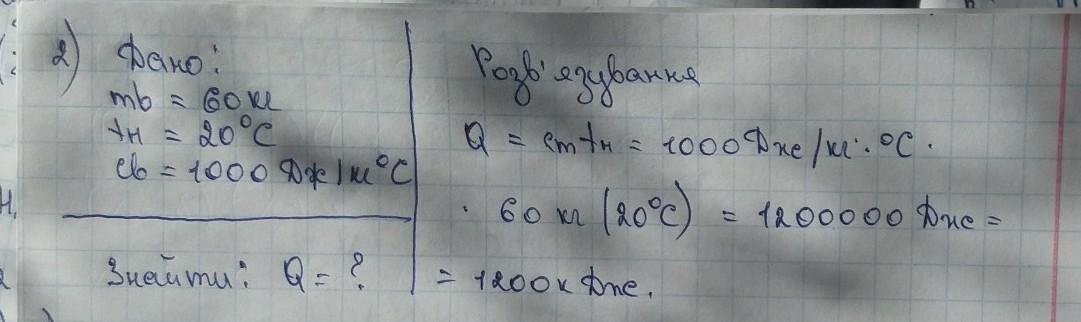 2) Дано:
mв = 60 кг
tн = 20°C
cв = 1000 Дж/кг°C
Знайти: Q = ?
Розв'язування
Q = cmtн = 1000 Дж/кг·°C ·
· 60 кг (20°C) = 1200000 Дж =
= 1200 кДж.